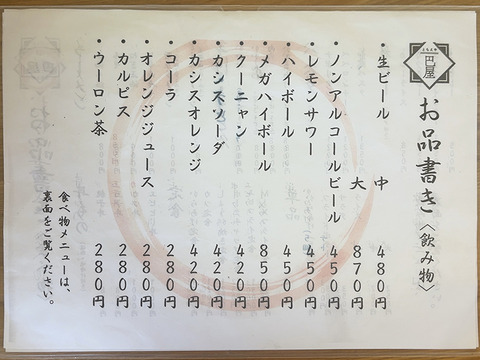 円屋
お品書き〈飲み物〉
・生ビール 中 480円
大 870円
・ノンアルコールビール 450円
・レモンサワー 450円
・ハイボール 450円
・メガハイボール 850円
・クーニャン 420円
・カシスソーダ 420円
・カシスオレンジ 420円
・コーラ 280円
・オレンジジュース 280円
・カルピス 280円
・ウーロン茶 280円
食べ物メニューは、
裏面をご覧ください。